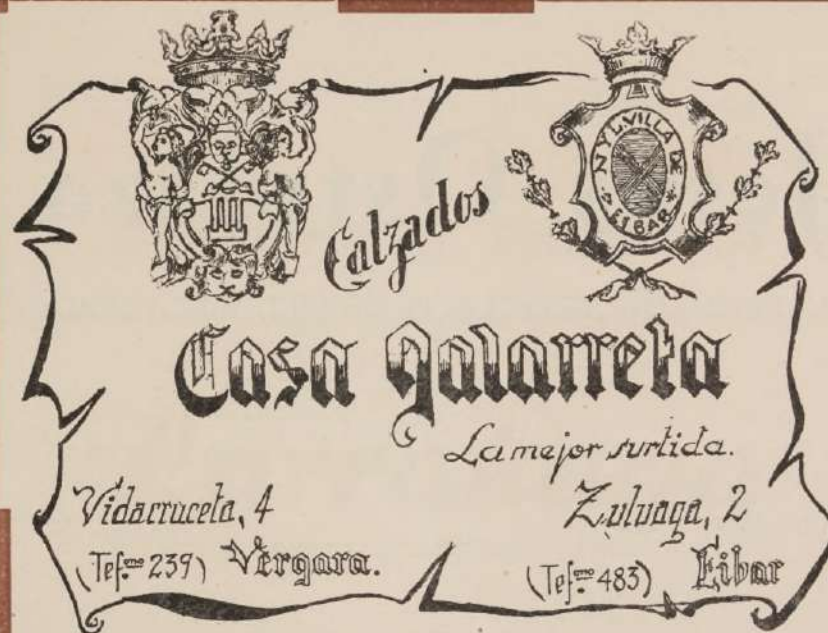 N Y L VILLA DE
EIBAR
Calzados
Casa Galarreta
La mejor surtida.
Vidacruceta, 4
(Tef.ono 239) Vergara.
Zuluaga, 2
(Tef.ono 483) Eibar